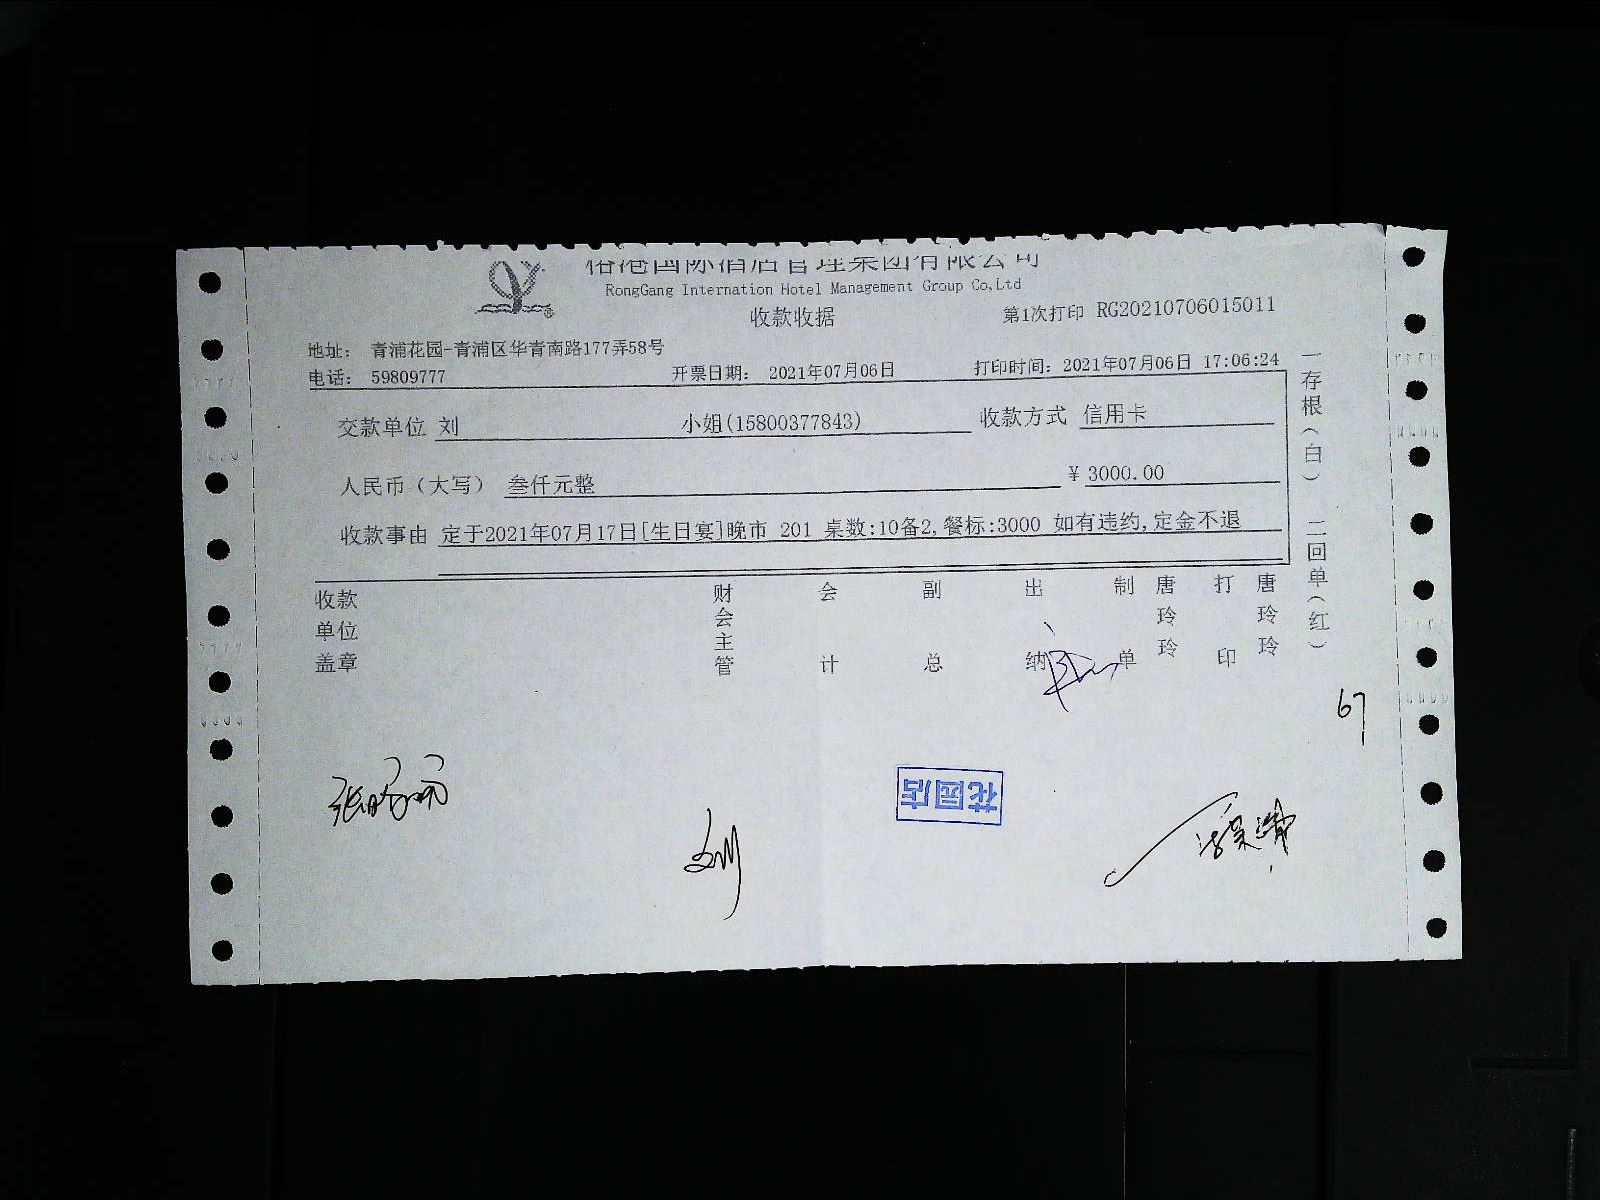 俗港国际酒店管理集团有限公司
RongGang Internation Hotel Management Group Co,Ltd
收款收据
第1次打印 RG20210706015011
地址： 青浦花园-青浦区华青南路177弄58号
电话： 59809777 开票日期： 2021年07月06日 打印时间：2021年07月06日 17:06:24
交款单位 刘 小姐(15800377843) 收款方式 信用卡
人民币（大写） 叁仟元整 ￥3000.00
收款事由 定于2021年07月17日[生日宴]晚市 201 桌数:10备2,餐标:3000 如有违约,定金不退
收款单位盖章 财会主管 会计 副总 出纳 制单 唐玲玲 打印 唐玲玲
一存根（白） 二回单（红）
67
花园店